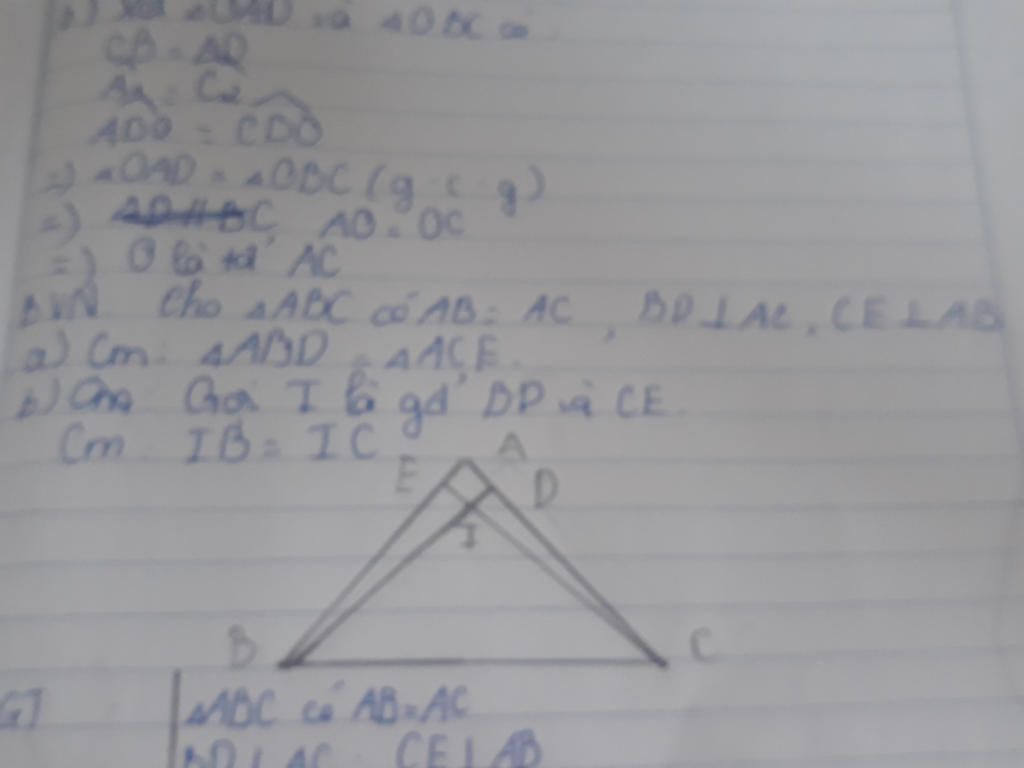 b) Xét △OAD và △OBC có
CB = AD
A₂ = C₂
ADO = CDO
=> △OAD = △OBC (g.c.g)
=> AD // BC AO = OC
=> O là tđ' AC
BVN. Cho △ABC có AB = AC, BD ⊥ AC, CE ⊥ AB
a) Cm: △ABD = △ACE.
b) Gọi I là gđ' BD và CE.
Cm IB = IC
A
E
D
I
B
C
GT
△ABC có AB = AC
BD ⊥ AC CE ⊥ AB